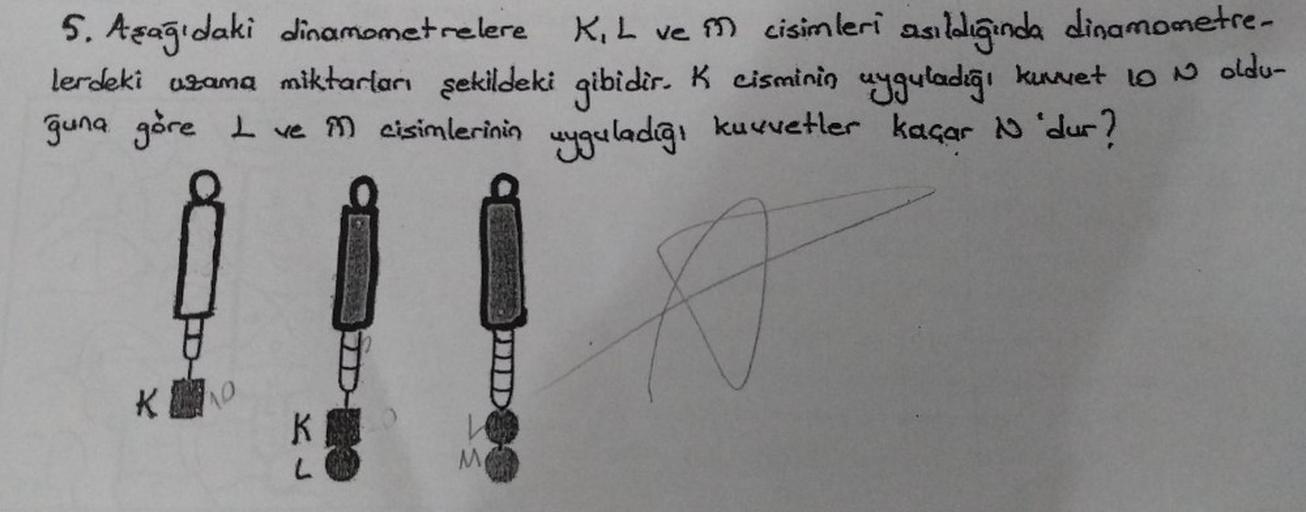 5. Aşağıdaki dinamometrelere K, L ve M cisimleri asıldığında dinamometre-
lerdeki uzama miktarları şekildeki gibidir. K cisminin uyguladığı kuvvet 10 N oldu-
ğuna göre L ve M cisimlerinin uyguladığı kuvvetler kaçar N'dur?
K 10
K
L
L
M